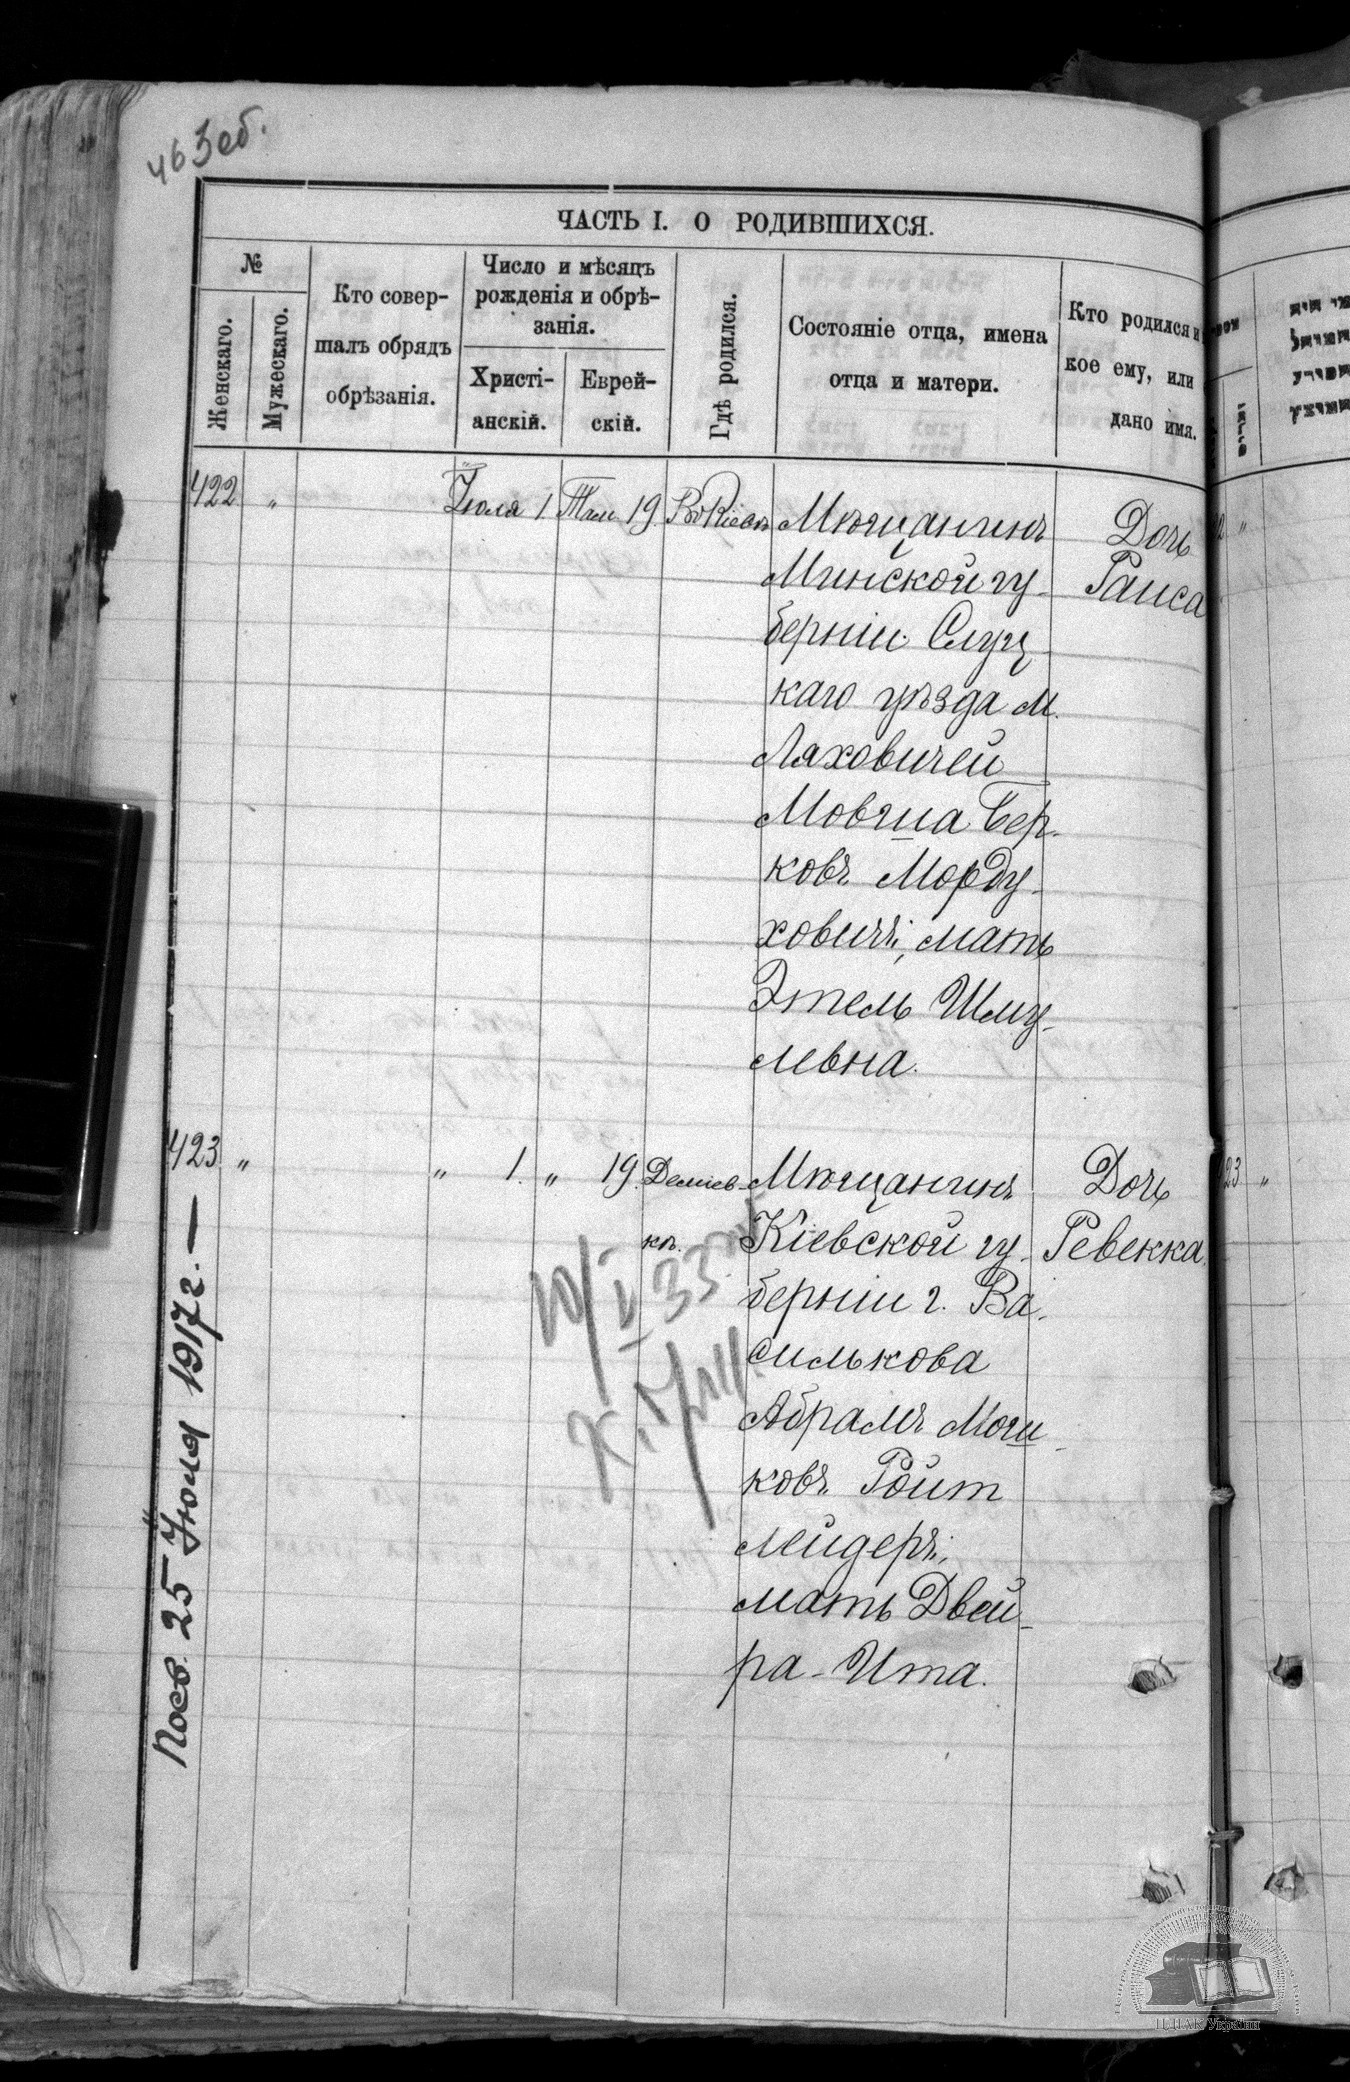 463 об.
ЧАСТЬ I. О РОДИВШИХСЯ.
№
Женскаго.
Мужескаго.
Кто совер-
шалъ обрядъ
обрѣзанія.
Число и мѣсяцъ
рожденія и обрѣ-
занія.
Христі-
анскій.
Еврей-
скій.
Гдѣ родился.
Состояніе отца, имена
отца и матери.
Кто родился и
кое ему, или
дано имя.
422 „ Іюля 1 Там. 19 Въ Кіевѣ Мѣщанинъ Дочь
Минской гу- Раиса
берніи Слуц
каго уѣзда м.
Ляховичей
Мовша Бер-
ковъ Морду-
ховичъ, мать
Этель Шму-
левна.
423 „ „ 1. „ 19. Деміев- Мѣщанинъ Дочь
кѣ. Кіевской гу- Ревекка.
берніи г. Ва-
силькова
Абрамъ Мош-
ковъ Ройт
лейдеръ,
мать Двей-
ра-Ита.
10/V 33
Посв. 25 Іюля 1917 г. —
23 „
ЦДІАК України